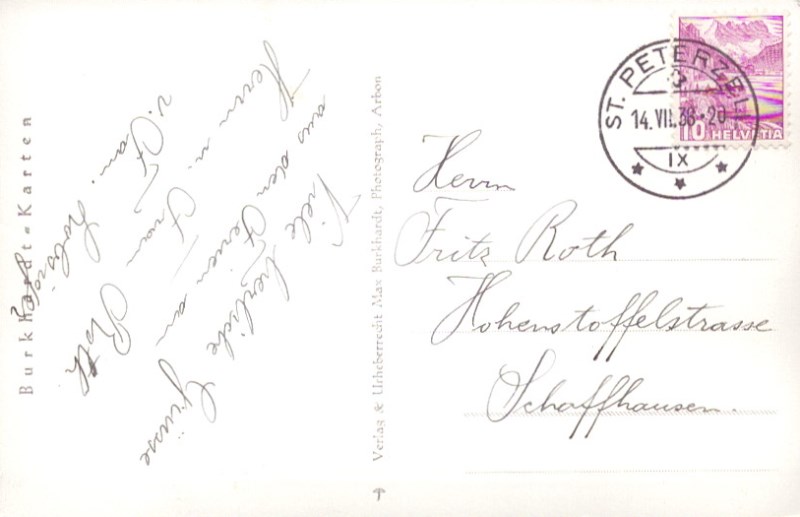 Burkhardt-Karten
Viele herzliche Grüsse
aus den Ferien an
Herrn u. Frau Roth
v. Fam.
Verlag & Urheberrecht Max Burkhardt, Photograph, Arbon
ST. PETERZELL
14.VII.36-20
IX
10 HELVETIA
Herrn
Fritz Roth
Hohenstoffelstrasse
Schaffhausen.